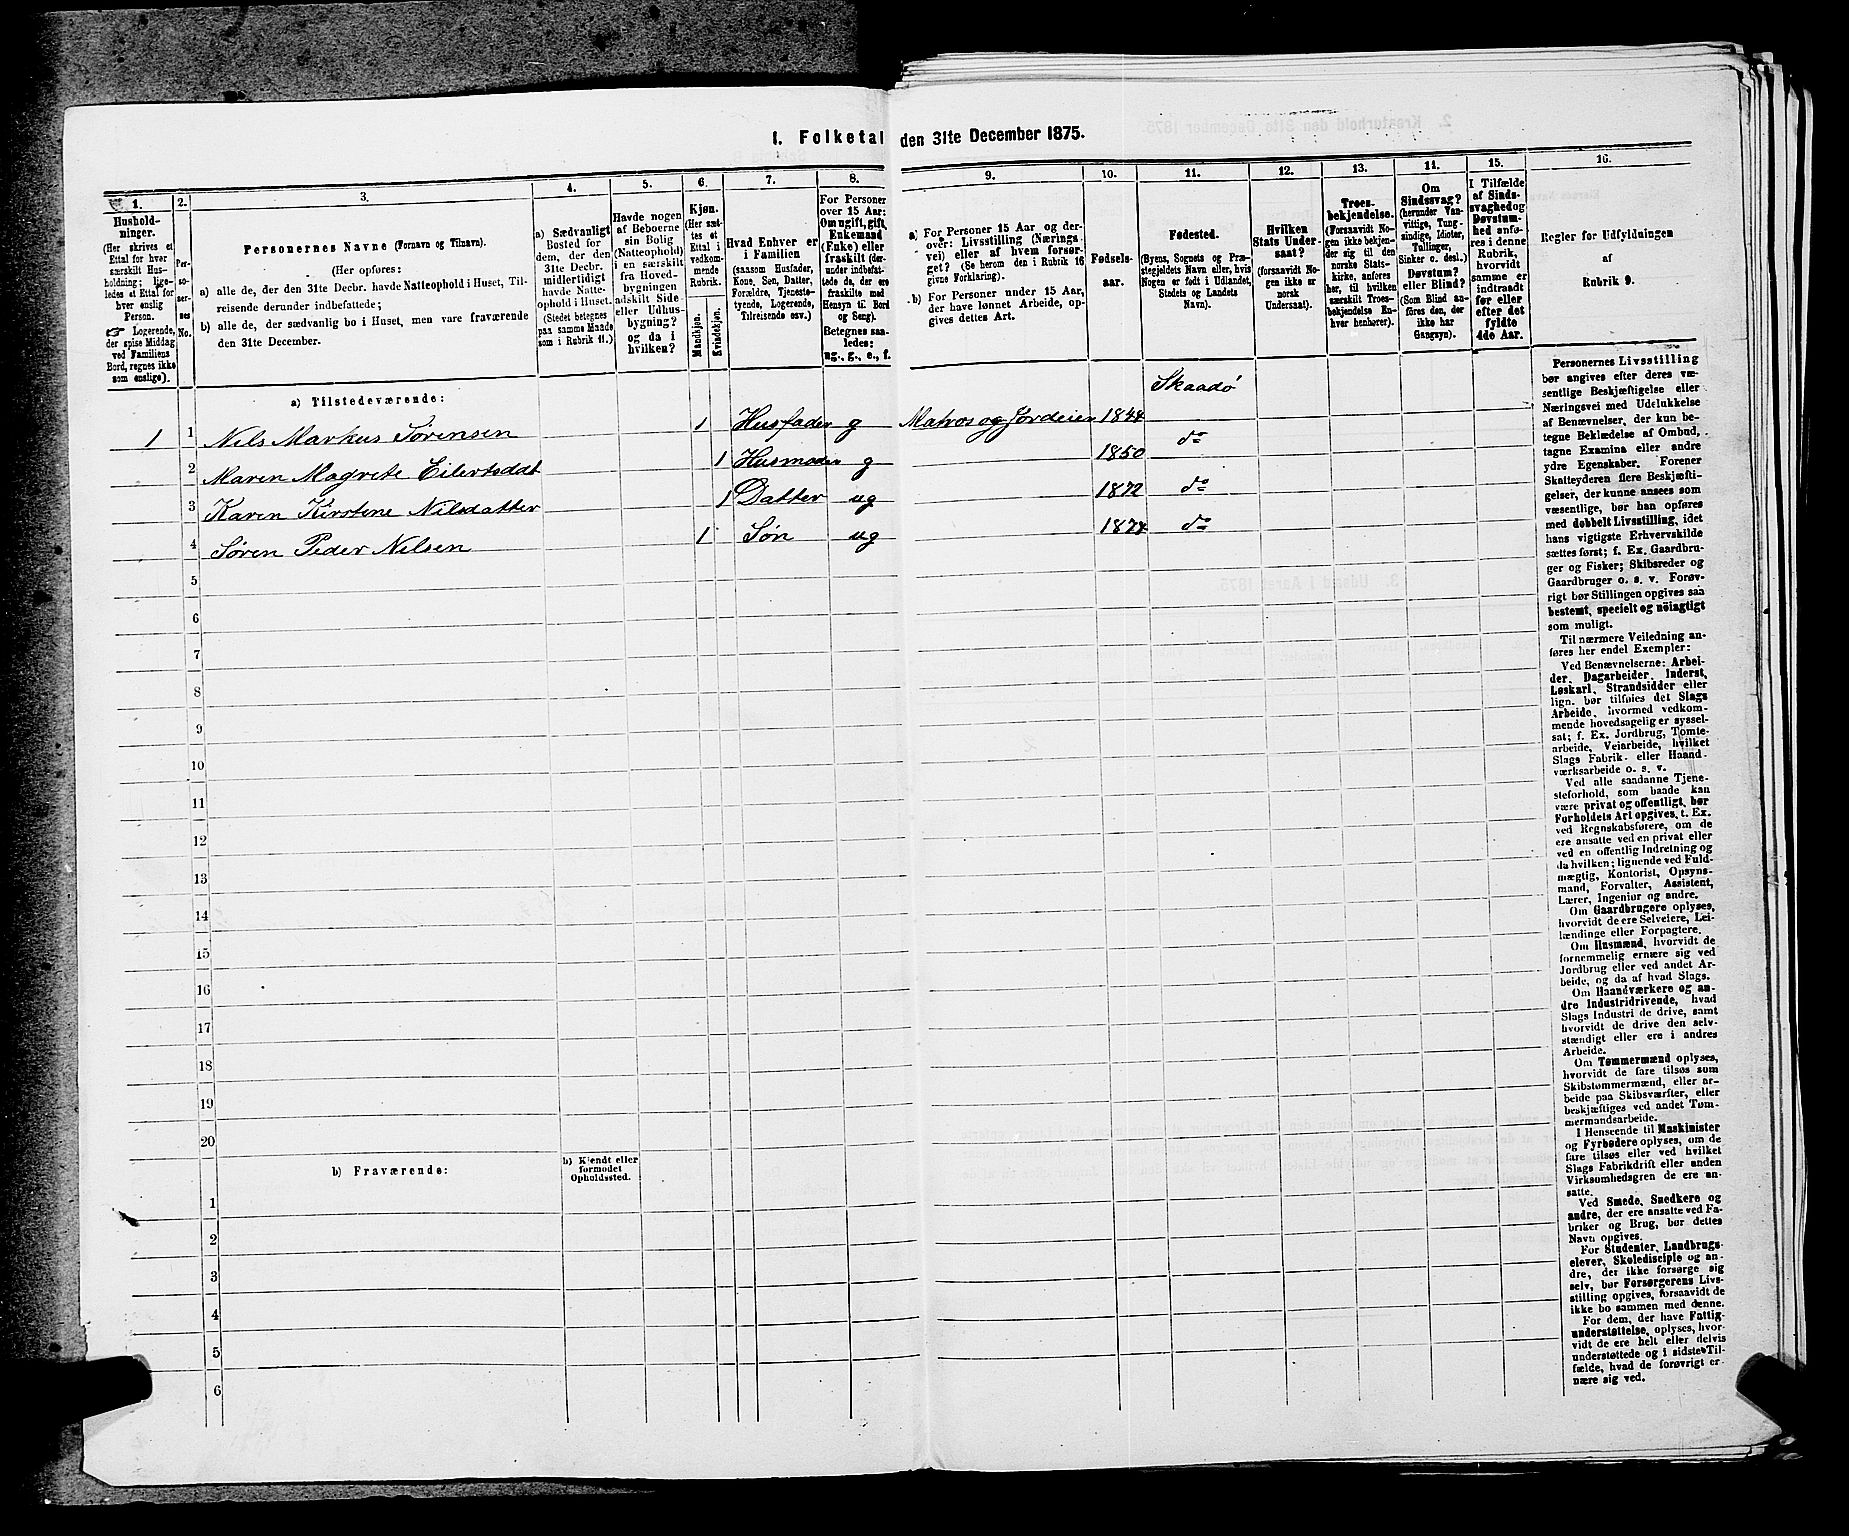 1. Folketal den 31te December 1875.
1.
Hushold-
ninger.
(Her skrives et
Ettal for hver
særskilt Hus-
holdning; lige-
ledes et Ettal for
hver enslig
Person.
☞ Logerende,
der spise Middag
ved Familiens
Bord, regnes ikke
som enslige).
2.
Per-
so-
ner-
nes
No.
3.
Personernes Navne (Fornavn og Tilnavn).
(Her opføres:
a) alle de, der den 31te Decbr. havde Natteophold i Huset, Til-
reisende derunder indbefattede;
b) alle de, der sædvanlig bo i Huset, men vare fraværende
den 31te December.
4.
a) Sædvanligt
Bosted for
dem, der den
31te Decbr.
midlertidigt
havde Natte-
ophold i Huset.
(Stedet betegnes
paa samme Maade
som i Rubrik 11.)
5.
Havde nogen
af Beboerne
sin Bolig
(Natteophold)
i en særskilt
fra Hoved-
bygningen
adskilt Side-
eller Udhus-
bygning?
og da i
hvilken?
6.
Kjøn.
(Her sæt-
tes et
Ettal i
vedkom-
mende
Rubrik.
Mandkjøn.
Kvindekjøn.
7.
Hvad Enhver er
i Familien
(saasom Husfader,
Kone, Søn, Datter,
Forældre, Tjeneste-
tyende, Logerende,
Tilreisende osv.)
8.
For Personer
over 15 Aar:
Om ugift, gift,
Enkemand
(Enke) eller
fraskilt (der-
under indbefat-
tede de, der ere
fraskilte med
Hensyn til Bord
og Seng).
Betegnes saa-
ledes:
ug., g., e., f.
9.
a) For Personer 15 Aar og der-
over: Livsstilling (Nærings-
vei) eller af hvem forsør-
get? (Se herom den i Rubrik 16
givne Forklaring).
b) For Personer under 15 Aar,
der have lønnet Arbeide, op-
gives dettes Art.
10.
Fødsels-
aar.
11.
Fødested.
(Byens, Sognets og Præ-
stegjeldets Navn eller, hvis
Nogen er født i Udlandet,
Stedets og Landets
Navn).
12.
Hvilken
Stats Under-
saat?
(forsaavidt No-
gen ikke er
norsk
Undersaat.
13.
Troes-
bekjendelse.
(Forsaavidt No-
gen ikke bekjen-
der sig til den
norske Stats-
kirke, anføres
her, til hvilken
særskilt Troes-
bekjendelse En-
hver henhører).
14.
Om
Sindssvag?
(herunder Van-
vittige, Tung-
sindige, Idioter,
Tullinger,
Sinker o. desl.)
Døvstum?
eller Blind?
(Som Blind an-
føres den, der
ikke har
Gangsyn).
15.
I Tilfælde
af Sinds-
svaghed og
Døvstum-
hed anfø-
res i denne
Rubrik,
hvorvidt
samme er
indtraadt
før eller
efter det
fyldte
4de Aar.
16.
Regler for Udfyldningen
af
Rubrik 9.
a) Tilstedeværende:
Skaadø
1 1 Nils Markus Sørensen 1 Husfader g Matros og Jordeier 1844
2 Maren Magrete Eilertsddt 1 Husmoder g 1850 do
3 Karen Kirstene Nilsdatter 1 Datter ug 1872 do
4 Søren Peder Nilsen 1 Søn ug 1874 do
5
6
7
8
9
10
11
12
13
14
15
16
17
18
19
20
b) Fraværende:
b) Kjendt eller
formodet
Opholdssted.
1
2
3
4
5
6
Personernes Livsstilling
bør angives efter deres væ-
sentlige Beskjæftigelse eller
Næringsvei med Udelukkelse
af Benævnelser, der kun be-
tegne Beklædelse af Ombud,
tagne Examina eller andre
ydre Egenskaber. Forener
Skatteyderen flere Beskjæfti-
gelser, der kunne ansees som
væsentlige, bør han opføres
med dobbelt Livsstilling, idet
hans vigtigste Erhvervskilde
sættes først; f. Ex. Gaardbru-
ger og Fisker; Skibsreder og
Gaardbruger o. s. v. Forøv-
rigt bør Stillingen opgives saa
bestemt, specielt og nöiagtigt
som muligt.
Til nærmere Veiledning an-
føres her endel Exempler:
Ved Benævnelserne: Arbei-
der, Dagarbeider, Inderst,
Løskarl, Strandsidder eller
lign. bør tilføies det Slags
Arbeide, hvormed vedkom-
mende hovedsagelig er syssel-
sat; f. Ex. Jordbrug, Tomte-
arbeide, Veiarbeide, hvilket
Slags Fabrik- eller Haand-
værksarbeide o. s. v.
Ved alle saadanne Tjene-
steforhold, som baade kan
være privat og offentligt, bør
Forholdets Art opgives, t. Ex.
ved Regnskabsførere, om de
ere ansatte ved en privat eller
ved en offentlig Indretning og
da hvilken; lignende ved Fuld-
mægtig, Kontorist, Opsyns-
mand, Forvalter, Assistent,
Lærer, Ingeniør og andre.
Om Gaardbrugere oplyses,
hvorvidt de ere Selveiere, Lei-
lændinge eller Forpagtere.
Om Husmænd, hvorvidt de
fornemmelig ernære sig ved
Jordbrug eller ved andet Ar-
beide, og da af hvad Slags.
Om Haandværkere og an-
dre Industridrivende, hvad
Slags Industri de drive, samt
hvorvidt de drive den selv-
stændigt eller ere i andres
Arbeide.
Om Tømmermænd oplyses,
hvorvidt de fare tilsøs som
Skibstømmermænd, eller ar-
beide paa Skibsværfter, eller
beskjæftiges ved andet Tøm-
mermandsarbeide.
I Henseende til Maskinister
og Fyrbødere oplyses, om de
fare tilsøs eller ved hvilket
Slags Fabrikdrift eller anden
Virksomhedsgren de ere an-
satte.
Ved Smede, Snedkere og
andre, der ere ansatte ved Fa-
briker og Brug, bør dettes
Navn opgives.
For Studenter, Landbrugs-
elever, Skoledisciple og an-
dre, der ikke forsørge sig
selv, bør Forsørgerens Livs-
stilling opgives, forsaavidt de
ikke bo sammen med denne.
For dem, der have Fattig-
understøttelse, oplyses, hvor-
vidt de ere helt eller delvis
understøttede og i sidste Til-
fælde, hvad de forøvrigt er-
nære sig ved.